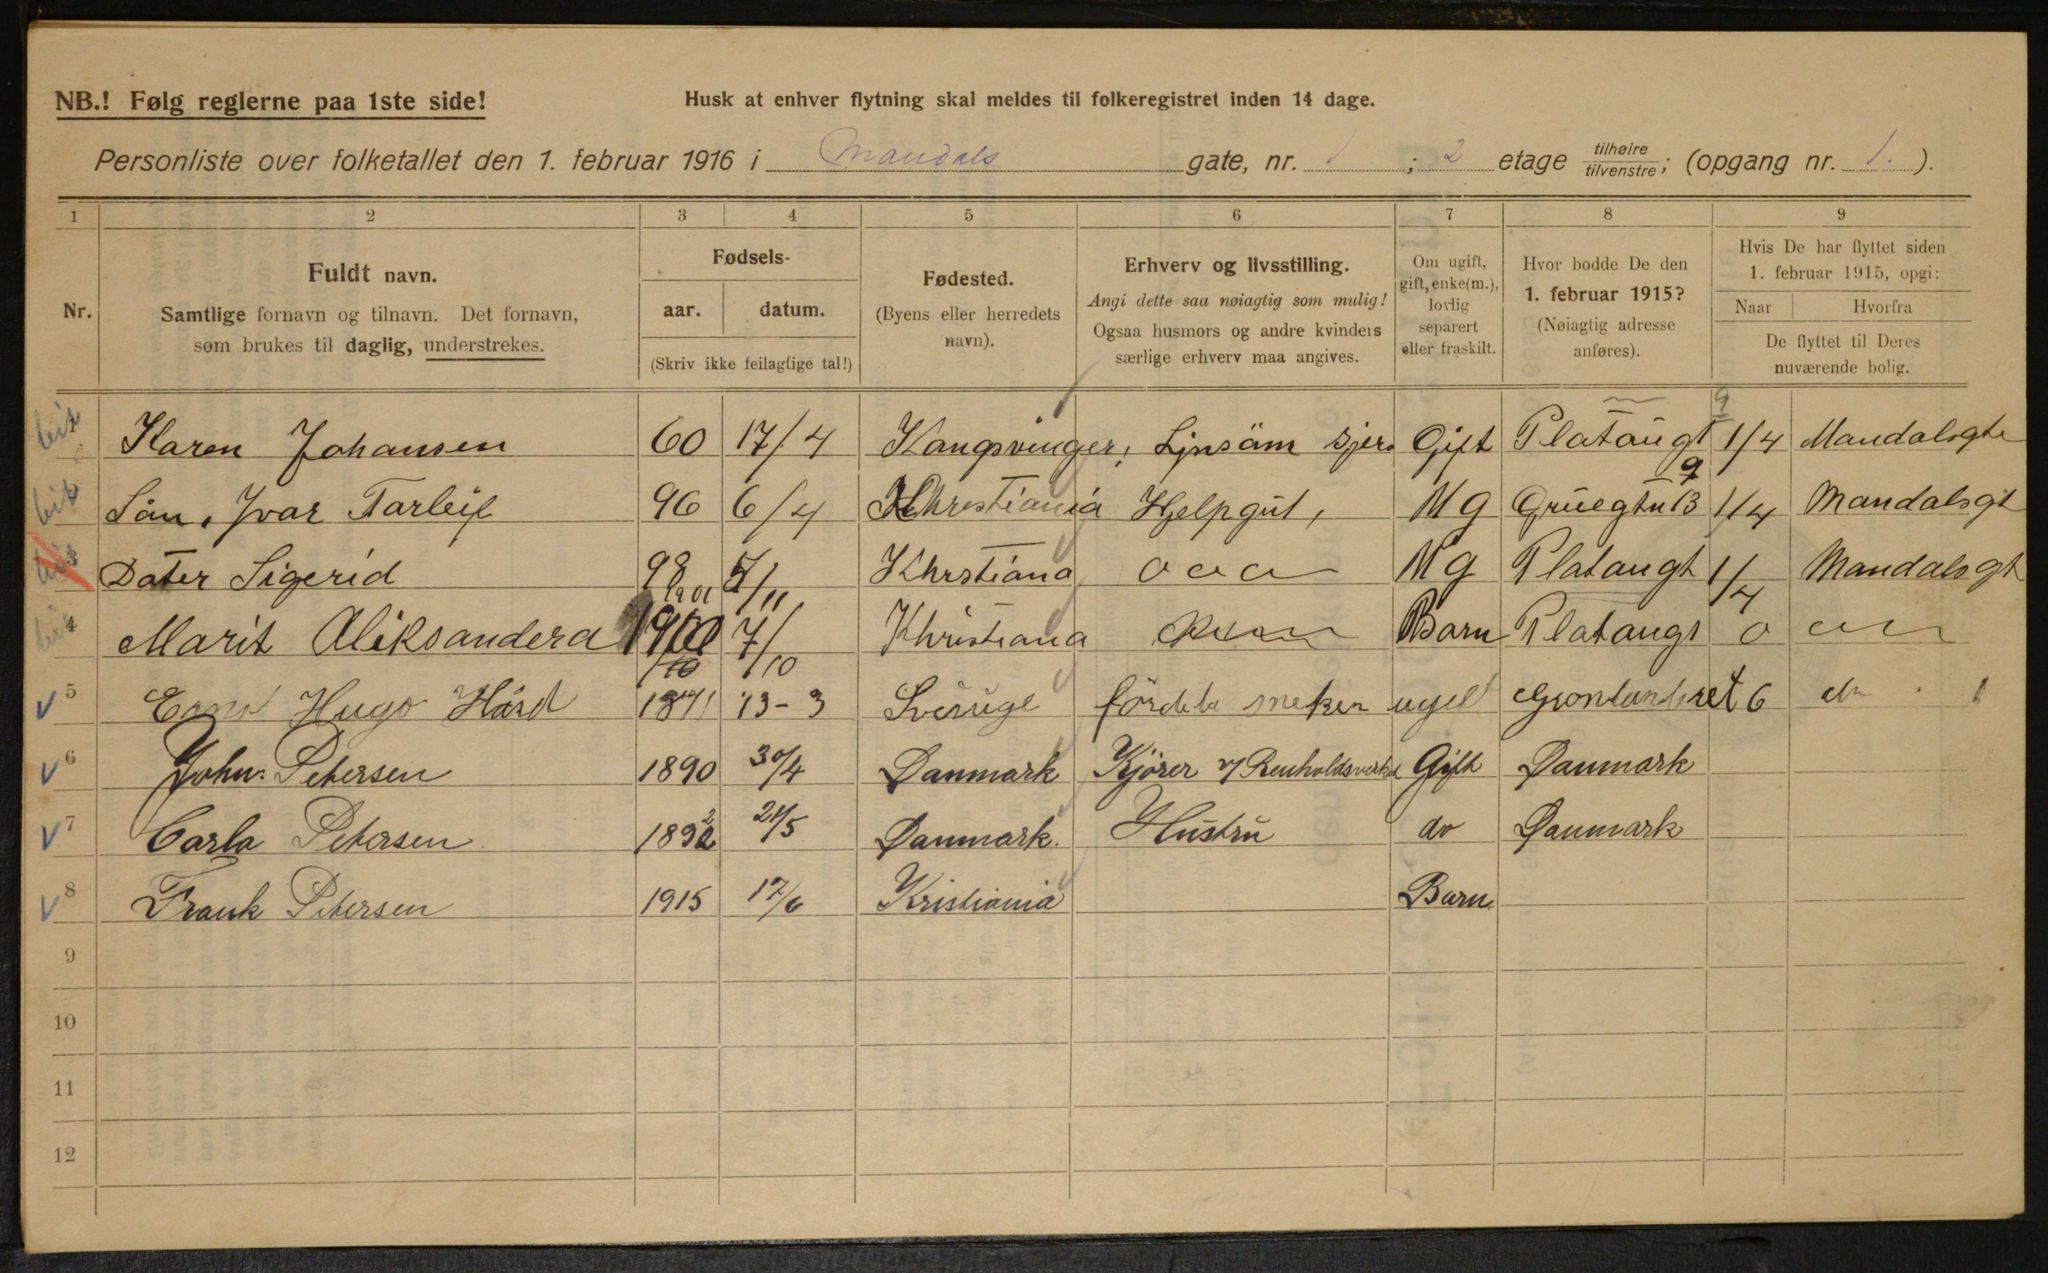 NB.! Følg reglerne paa 1ste side!
Husk at enhver flytning skal meldes til folkeregistret inden 14 dage.
Personliste over folketallet den 1. februar 1916 i Mandals gate, nr. 1 ; 2 etage tilhøire/tilvenstre; (opgang nr. 1. ).
1 2 3 4 5 6 7 8 9
Nr.
Fuldt navn.
Samtlige fornavn og tilnavn. Det fornavn,
som brukes til daglig, understrekes.
Fødsels-
aar. datum.
(Skriv ikke feilagtige tal!)
Fødested.
(Byens eller herredets
navn).
Erhverv og livsstilling.
Angi dette saa nøiagtig som mulig!
Ogsaa husmors og andre kvinders
særlige erhverv maa angives.
Om ugift,
gift, enke(m.),
lovlig
separert
eller fraskilt.
Hvor bodde De den
1. februar 1915?
(Nøiagtig adresse
anføres).
Hvis De har flyttet siden
1. februar 1915, opgi:
Naar Hvorfra
De flyttet til Deres
nuværende bolig.
Karen Johansen 60 17/4 Kangsvinger, Gift Plataugt 9 1/4 Mandalsgte
Sön, Ivar Tarleif 96 6/4 Khrestiania Hjelpgut, Ug 9 1/4 Mandalsgt
Dater Sigerid 98 /11 Khrstiana Ug Plataugt 1/4 Mandalsgt
4 Marit Aliksandera 1901 7/10 Khristiana Barn Plataugt
5 Hugo Hård 13-3 Sverige 6
6 John. Petersen 1890 30/4 Danmark Kjörer v/ Renholdsverket Gift Danmark
7 Carla Petersen 1892 21/5 Danmark. Hustru do Danmark
8 Frank Petersen 1915 17/6 Kristiania Barn
9
10
11
12